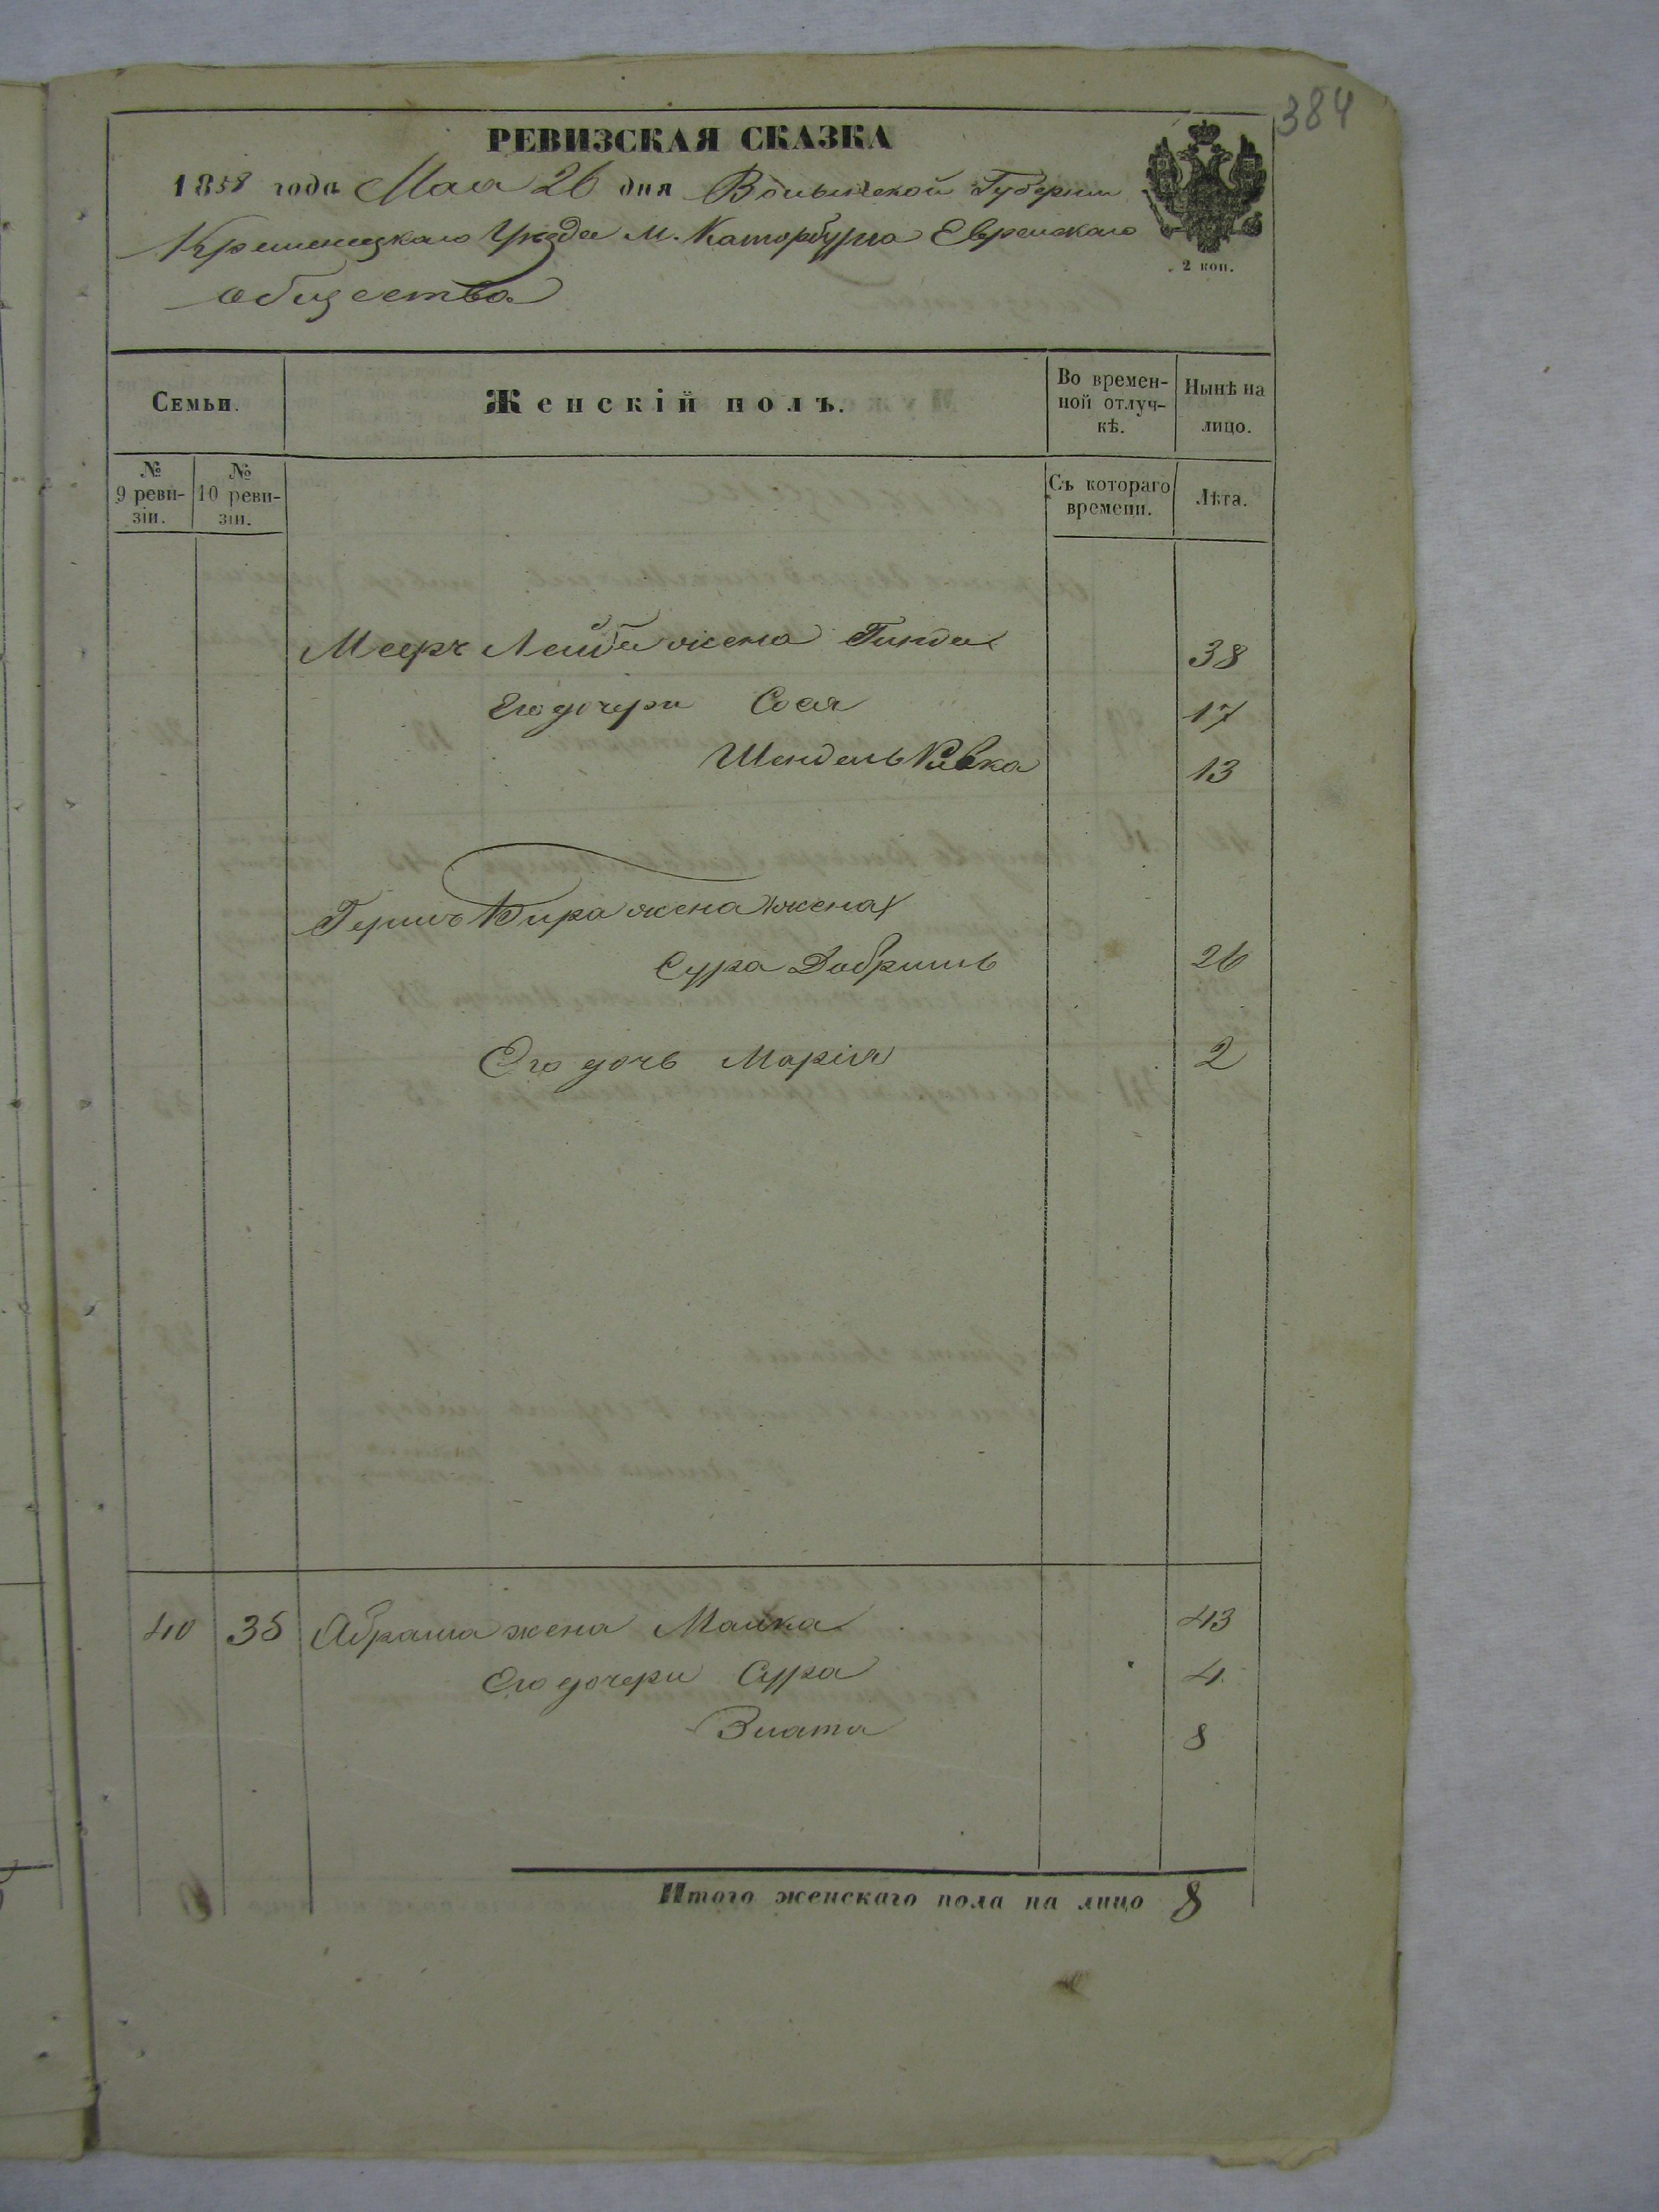 384
РЕВИЗСКАЯ СКАЗКА
1858 года Мая 26 дня Волынской Губернии
Кременецкаго Уѣзда м. Каторбурга Еврейскаго
общества
2 коп.
Семьи.
Женскій полъ.
Во времен-
ной отлуч-
кѣ.
Нынѣ на
лицо.
№
9 реви-
зіи.
№
10 реви-
зіи.
Съ котораго
времени.
Лѣта.
Меера Лейбы жена Гинда 38
Его дочери Сося 17
Шендель Ривка 13
Гершъ Бира жена
Сура Добришь 26
Его дочь Марія 2
40 35 Абрама жена Малка 43
Его дочери Сура 4
Злата 8
Итого женскаго пола на лицо 8